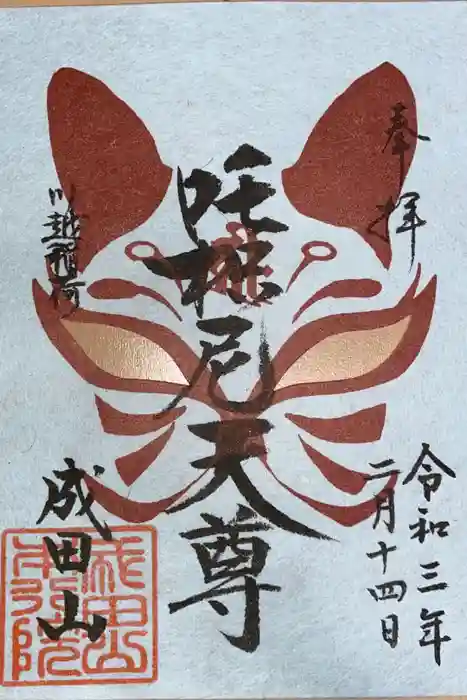 奉拝
令和三年
二月十四日
吒枳尼天尊
川越稲荷
成田山